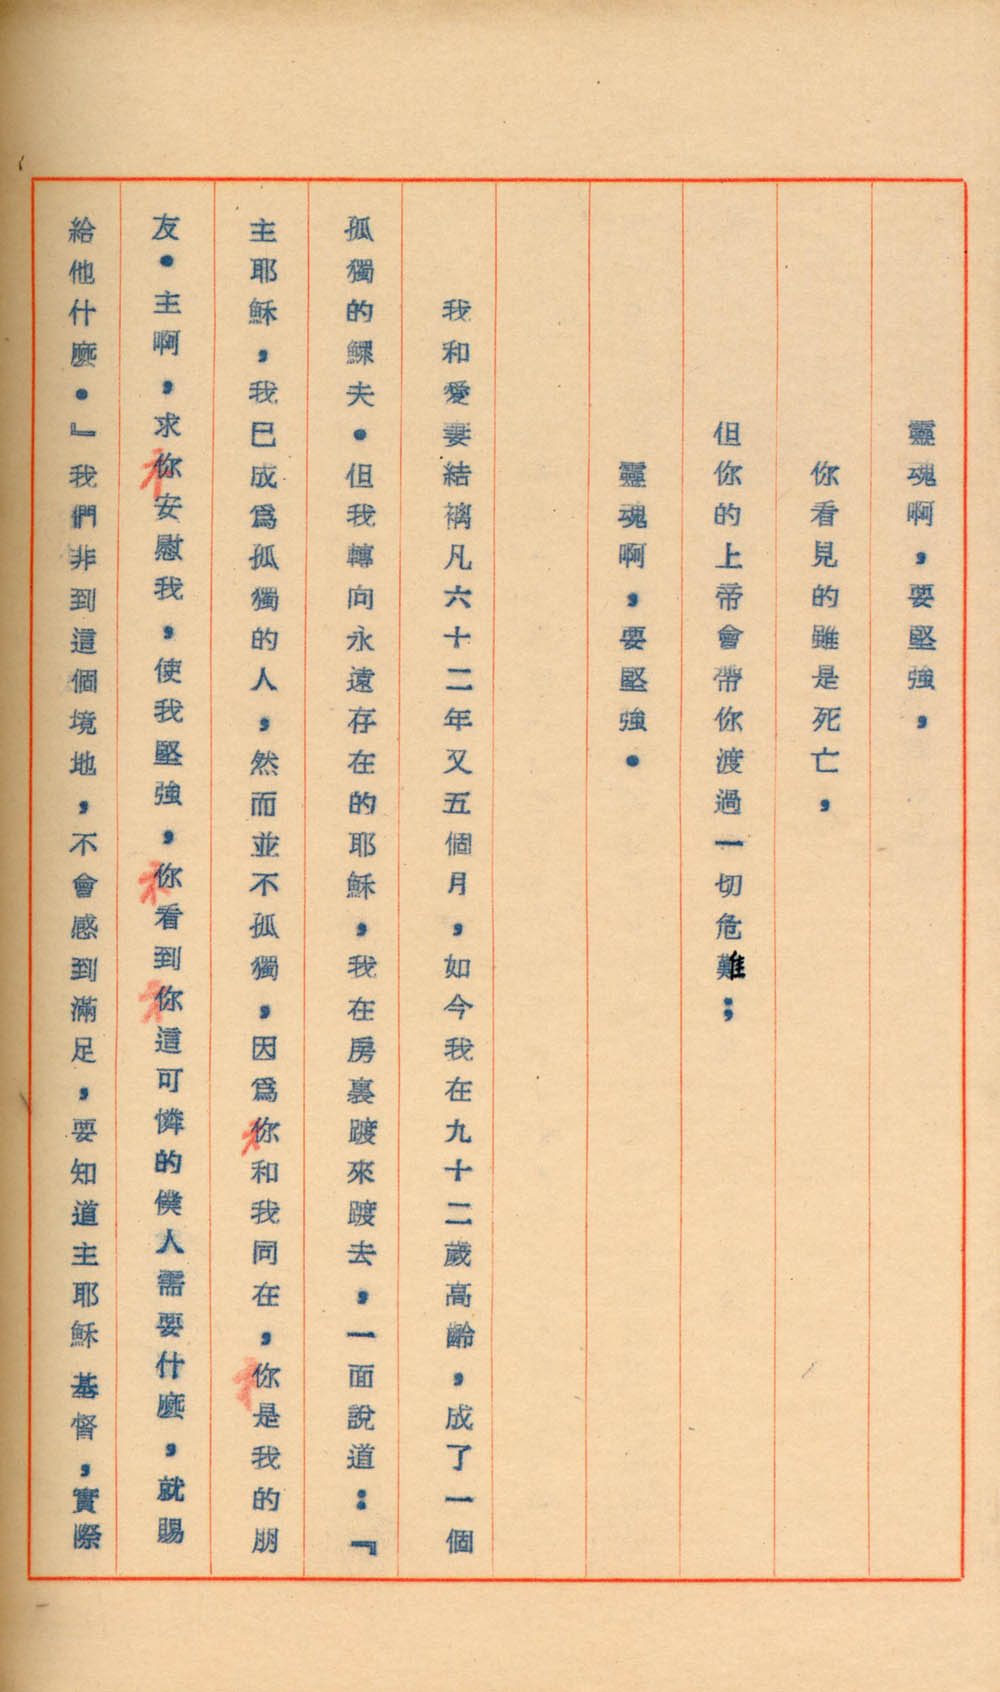 靈魂啊，要堅強，
你看見的雖是死亡，
但你的上帝會帶你渡過一切危難；
靈魂啊，要堅強。
我和愛妻結褵凡六十二年又五個月，如今我在九十二歲高齡，成了一個
孤獨的鰥夫。但我轉向永遠存在的耶穌，我在房裏踱來踱去，一面說道：『
主耶穌，我已成爲孤獨的人，然而並不孤獨，因爲你和我同在，你是我的朋
友。主啊，求你安慰我，使我堅強，你看到你這可憐的僕人需要什麼，就賜
給他什麼。』我們非到這個境地，不會感到滿足，要知道主耶穌基督，實際